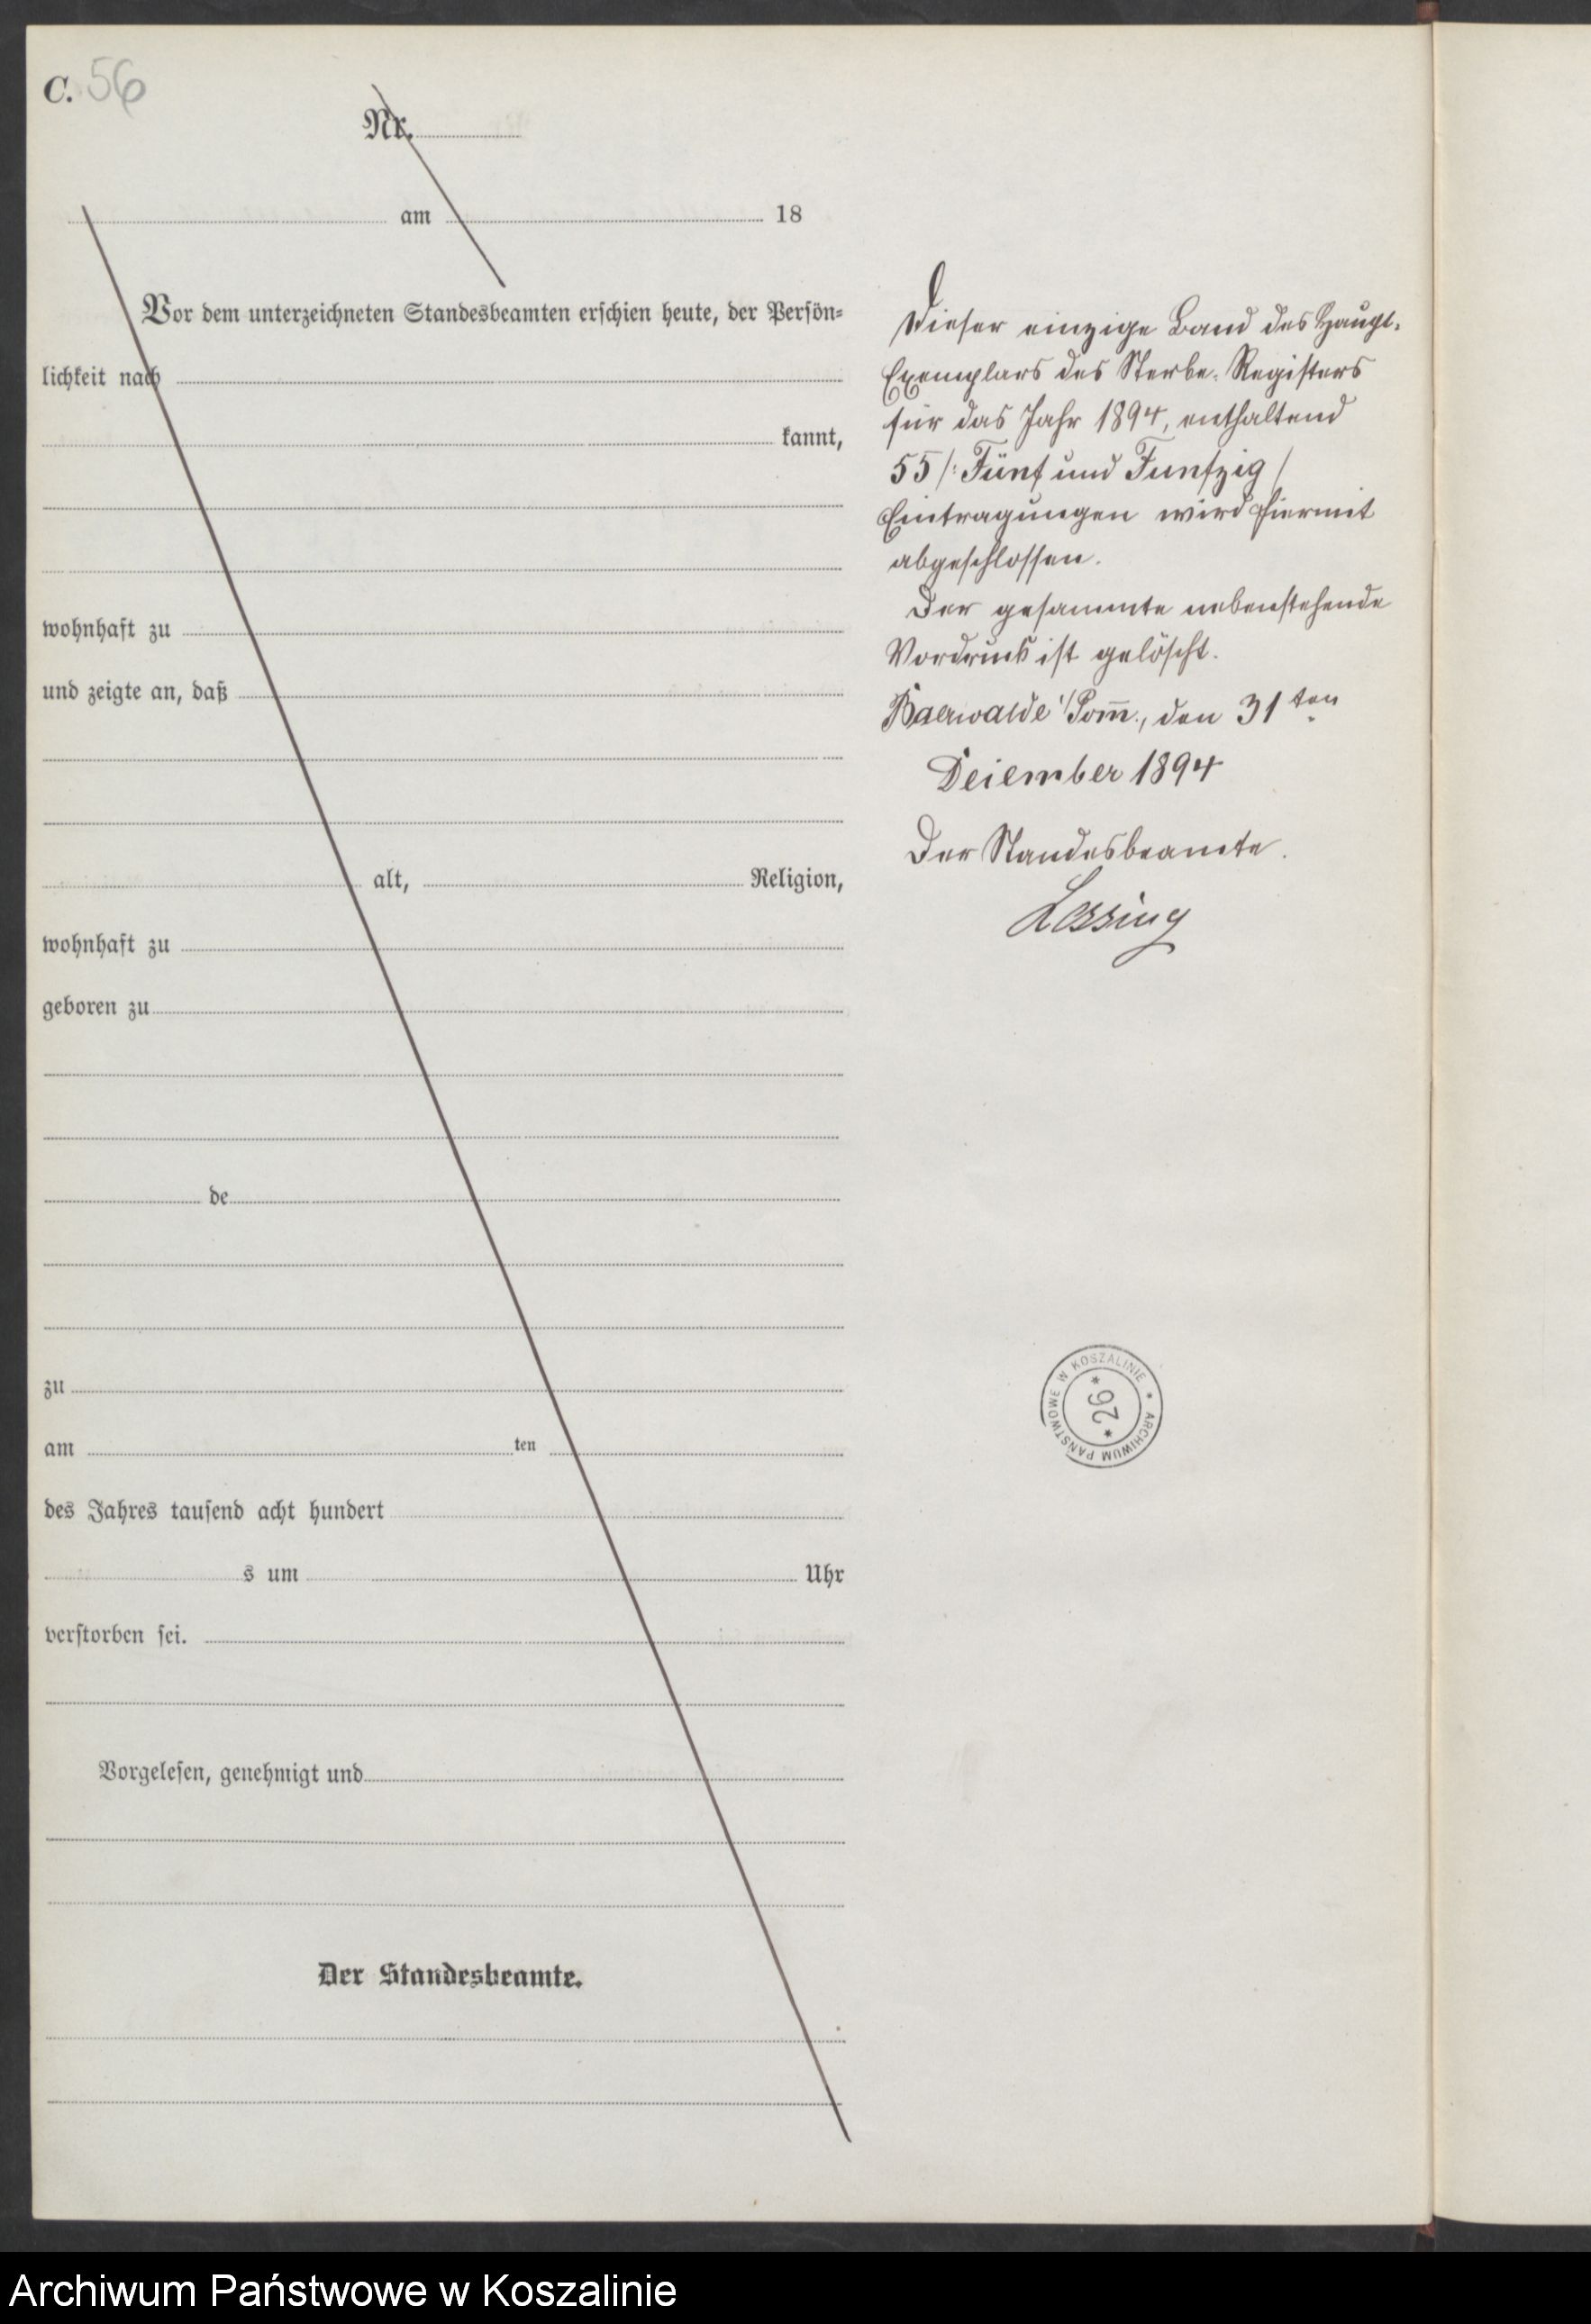 C. 56
Nr.
am 18
Vor dem unterzeichneten Standesbeamten erschien heute, der Persön-
lichkeit nach
kannt,
wohnhaft zu
und zeigte an, daß
alt, Religion,
wohnhaft zu
geboren zu
de
zu
am ten
des Jahres tausend acht hundert
s um Uhr
verstorben sei.
Vorgelesen, genehmigt und
Der Standesbeamte.
Dieser einzige Band des Haupt-
Exemplars des Sterbe-Registers
für das Jahr 1894, enthaltend
55 /: Fünf und Funfzig /
Eintragungen wird hiermit
abgeschlossen.
Der gesammte nebenstehende
Vordruck ist gelöscht.
Baerwalde i/Pom̅., den 31ten
Dezember 1894
Der Standesbeamte.
Lessing
ARCHIWUM PAŃSTWOWE W KOSZALINIE *
* 26 *
Archiwum Państwowe w Koszalinie